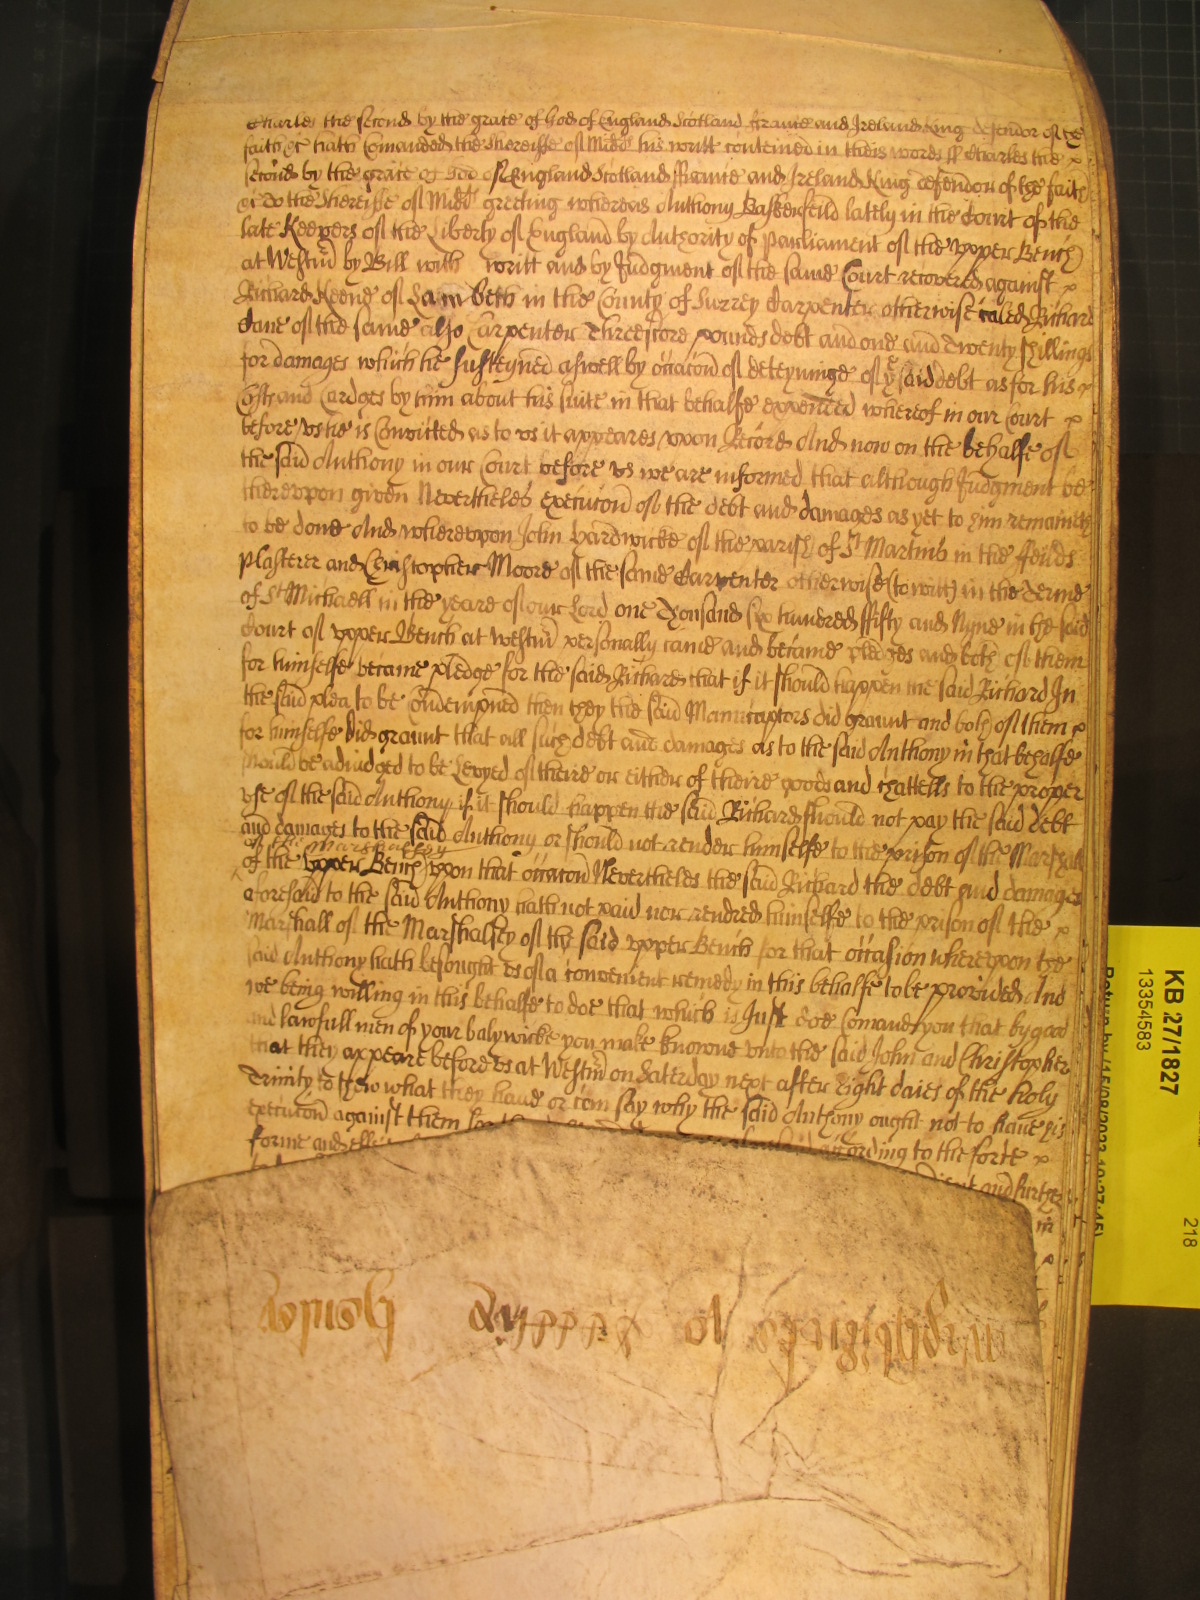 Charles the second by the grace of God of England Scotland France and Ireland King defendor of the
faith &c hath Comanded the Shereiffe of Midd his writt conteined in theis words ss Charles the
second by the grace of God of England Scotland ffrance and Ireland King defendor of the faith
&c To the Shereiffe of Midd greeting whereas Anthony Baskerfeild lately in the Court of the
late Keepers of the Liberty of England by Authority of Parliament of the vpper Bench
at Westm by Bill with writt and by Judgment of the same Court recovered against
Richard Keene of Lambeth in the County of Surrey Carpenter otherwise caled Richard
Cane of the same also Carpenter Threescore pounds debt and one and Twenty shillings
for damages which he susteyned aswell by occacon of deteyninge of ye said debt as for his
Costs and Cardges by him about his suite in that behalfe expended whereof in our Court
before vs he is Convicted as to vs it appeares vpon Record And now on the behalfe of
the said Anthony in our Court before vs we are informed that although Judgment be
therevpon given Nevertheles execucon of the debt and damages as yet to him remaineth
to be done And wherevpon John Hardwicke of the parish of St Martins in the ffeilds
Plasterer and Christopher Moore of the same Carpenter otherwise (to witt) in the Terme
of St Michaell in the yeare of our Lord one Thousand six hundred ffifty and Nyne in the said
Court of vpper Bench at Westm personally came and became pledges and both of them
for himselfe became pledge for the said Richard that if it should happen the said Richard In
the said plea to be Condempned then they the said Manucaptors did graunt and both of them
for himselfe did graunt that all such debt and damages as to the said Anthony in that behalfe
should be adiudged to be Levyed of theire or either of theire goods and chattells to the proper
vse of the said Anthony if it should happen the said Richard should not pay the said debt
and damages to the said Anthony or should not render himselfe to the prison of the Marshall
of the Marshalsey
of the vpper Bench vpon that occacon Nevertheles the said Richard the debt and damages
aforesaid to the said Anthony hath not paid nor rendred himselfe to the prison of the
Marshall of the Marshalsey of the said vpper Bench for that occasion wherevpon the
said Anthony hath besought vs of a convenient remedy in this behalfe to be provided And
we being willing in this behalfe to doe that which is Just doe Comand you that by good
and lawfull men of your balywicke you make knowne vnto the said John and Christopher
that they appeare before vs at Westm on Saterday next after eight daies of the holy
Trinity to shew what they have or can say why the said Anthony ought not to have his
execucon against them for the
forme and according to the force
and further
in
KB 27/1827
13354583
Return by (15/08/2023 10:27:45)
218